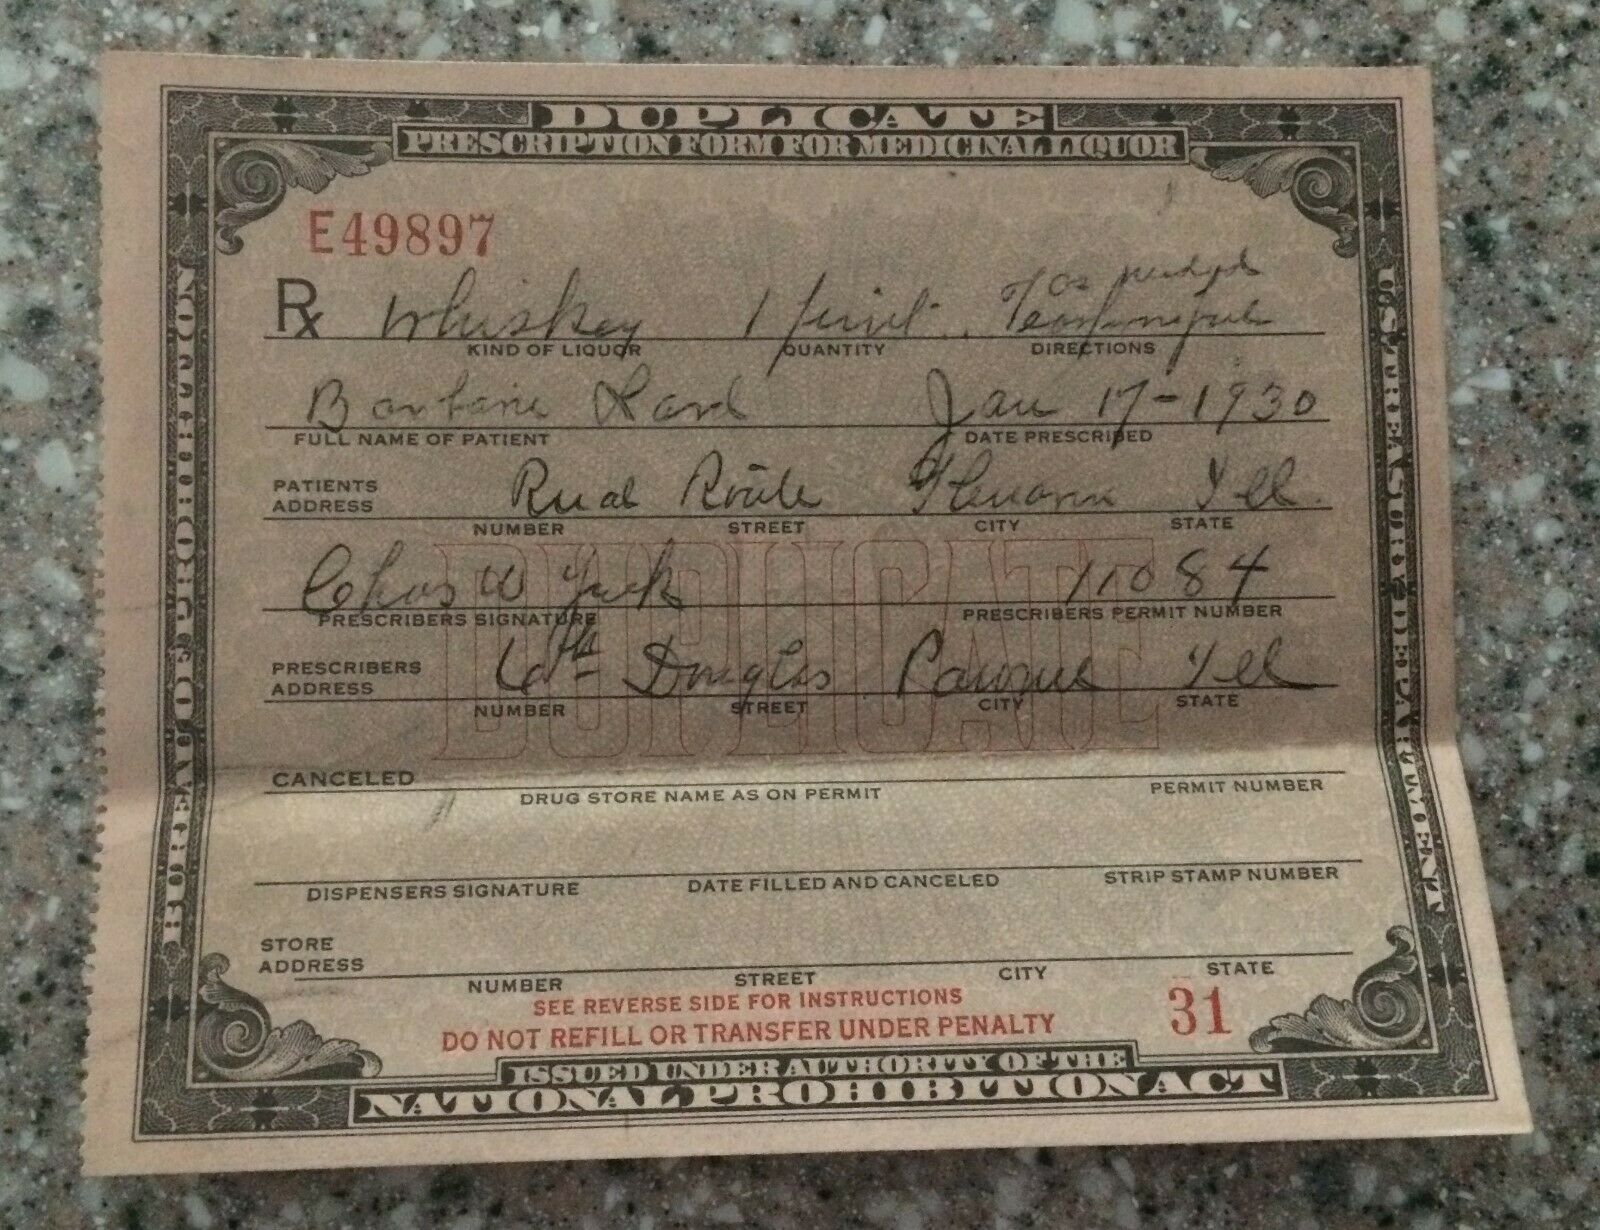 DUPLICATE
PRESCRIPTION FORM FOR MEDICINAL LIQUOR
BUREAU OF PROHIBITION
U.S. TREASURY DEPARTMENT
E49897
Rx Whiskey 1 pint
KIND OF LIQUOR QUANTITY DIRECTIONS
Jan 17-1930
FULL NAME OF PATIENT DATE PRESCRIBED
PATIENTS ADDRESS Rual Route Ill.
NUMBER STREET CITY STATE
Chas W 11084
PRESCRIBERS SIGNATURE PRESCRIBERS PERMIT NUMBER
PRESCRIBERS ADDRESS 6th Douglas Ill
NUMBER STREET CITY STATE
DUPLICATE
CANCELED
DRUG STORE NAME AS ON PERMIT PERMIT NUMBER
DISPENSERS SIGNATURE DATE FILLED AND CANCELED STRIP STAMP NUMBER
STORE ADDRESS
NUMBER STREET CITY STATE
SEE REVERSE SIDE FOR INSTRUCTIONS
DO NOT REFILL OR TRANSFER UNDER PENALTY 31
ISSUED UNDER AUTHORITY OF THE
NATIONAL PROHIBITION ACT